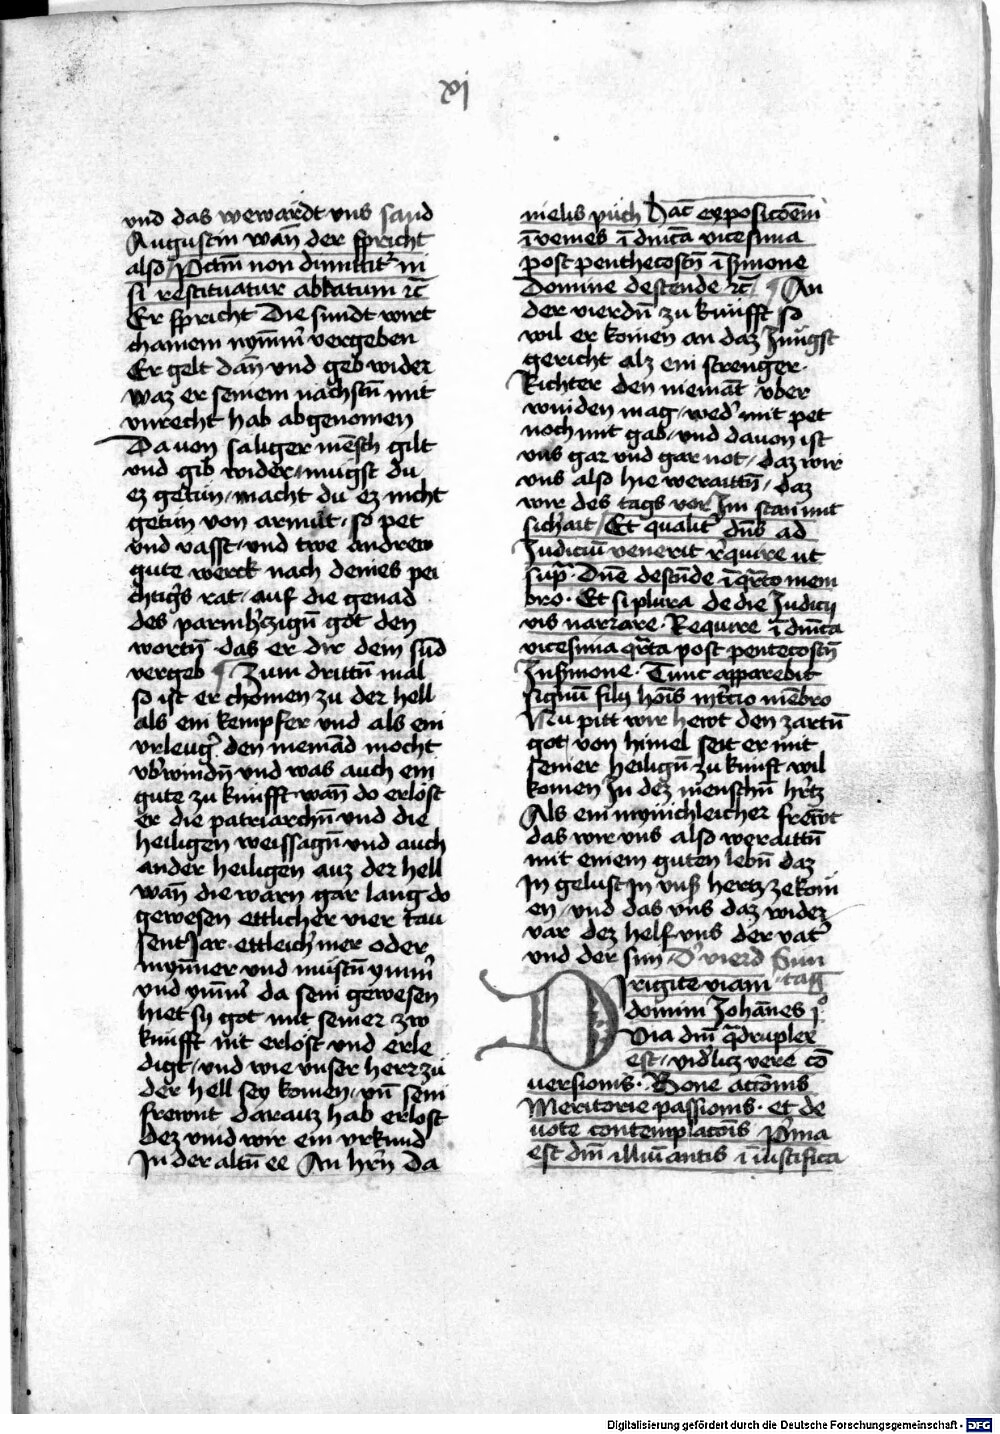 xj
vnd das wewardt vns sand
Augustin wan̄ der spricht
also Pctm̄ non dimittit̉ ni
si restituatur ablatum ⁊c̄
Er spricht Die sundt wirt
chainem nym̄m̉ vergeben
Er gelt dan̄ vnd geb wider
waz er seinem nachstn̄ mit
vnrecht hab abgenomen
Dauon saliger mēsch gilt
vnd gib wider mugst du
ez getun macht du ez nicht
getun von armut so pet
vnd vasst vnd twe andrew
gute werck nach deines pei
chtig̉s rat auf die genad
des parmh̉czign̄ got den
wortn̄ das er dir dein sūd
vergeb ¶ Zum drittn̄ mal
so ist er chomen zu der hell
als ein kempfer vnd als ein
vrleug̉ den niemād mocht
vb̉windn̄ vnd was auch ein
gute zu kunfft wan̄ do erlost
er die patriarchn̄ vnd die
heiligen weissagn̄ vnd auch
ander heiligen auz der hell
wan̄ die warn gar lang do
gewesen ettlicher vier tau
sent Jar ettleich̉ mer oder
mynner vnd mustn̄ ymm̉
vnd ym̄m̉ da sein gewesen
hiet sy got mit seiner zw
kunfft nit erlost vnd erle
digt vnd wie vnser herr zu
der hell sey komen vn̄ sein
frewnt darauz hab erlost
dez vind wir ein vrkund
In der altn̄ ee An hrn̄ Da
nielis puch Hāc exposicōem
īvenies ī dn̄ica vicesima
post penthecostn̄ ī s̉mone
Domine descende ⁊c̄ ¶ An
der vierdn̄ zu kunfft so
wil er komen an daz Jungst
gericht alz ein strenger
Richter den niemāt vber
winden mag wed̉ mit pet
noch mit gab vnd dauon ist
vns gar vnd gar not daz wir
vns also hie weraittn̄ daz
wir des tags vor Im stan mit
sich̉ait Et qualit̉ dn̄s ad
Judiciū venerit r̉quire ut
sup̄ Dn̄e descn̄de ī q̄rto mem
bro Et si plura de die Judicij
vis narrare Require ī dn̄ica
vicesima q̄rta post pentecostn̄
In s̉mone Tunc apparebit
signū filij hoīs in t̉cio mēbro
Nu pitt wir hewt den zartn̄
got von himel seit er mit
seiner heilign̄ zu kunft wil
komen In dez menschn̄ hr̉tz
Als ein mynichleicher frewt
das wir vns also weraittn̄
mit einem guten lebn̄ daz
In gelust In vns̉ hertz ze kom
en vnd das vns daz wider
var dez helf vns der vat̉
vnd der sun D̉ vierd Sun
tag
Dirigite viam
domini Johānes jº
Via dn̄i q̄druplex
est vidl̉icz vere cō
uersionis Bone actōnis
Meritorie passionis et de
uote contemplatōis P̉ma
est dn̄i illuīantis ī iustifica
Digitalisierung gefördert durch die Deutsche Forschungsgemeinschaft - DFG